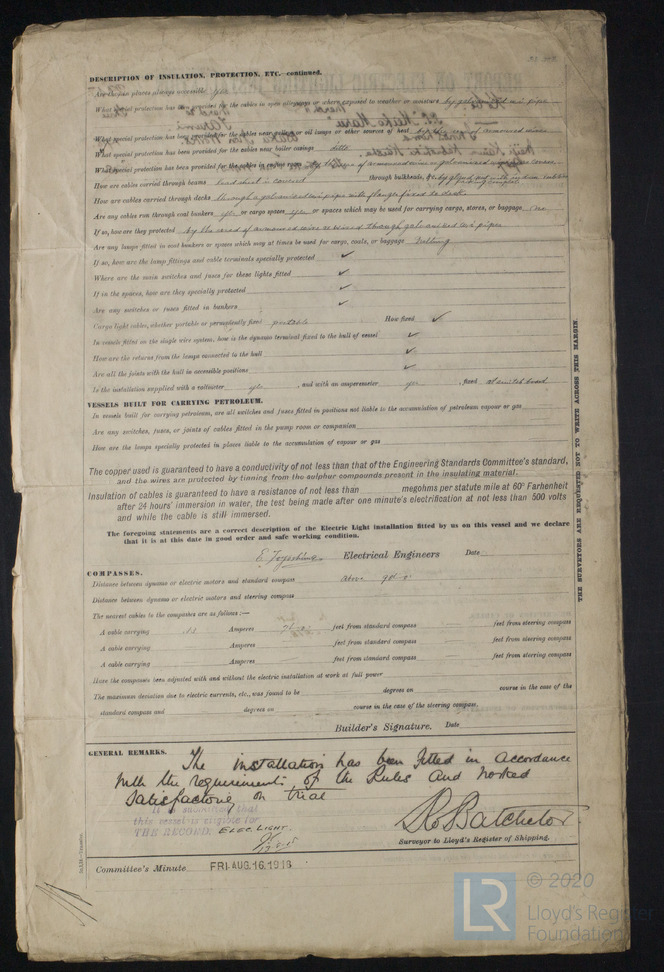 DESCRIPTION OF INSULATION, PROTECTION, ETC.—continued.
Are the places always accessible yes
What special protection has been provided for the cables in open alleyways or where exposed to weather or moisture by galvanized iron pipe
What special protection has been provided for the cables near galley or oil lamps or other sources of heat armoured wires
What special protection has been provided for the cables near boiler casings ditto
What special protection has been provided for the cables in engine room
How are cables carried through beams lead sheet is covered through bulkheads, &c. by gland
How are cables carried through decks through galvanized iron pipe with flange fixed to decks
Are any cables run through coal bunkers yes or cargo spaces yes or spaces which may be used for carrying cargo, stores, or baggage no
If so, how are they protected by the armoured wires through galvanized iron pipes
Are any lamps fitted in coal bunkers or spaces which may at times be used for cargo, coals, or baggage nothing
If so, how are the lamp fittings and cable terminals specially protected ✓
Where are the main switches and fuses for these lights fitted ✓
If in the spaces, how are they specially protected ✓
Are any switches or fuses fitted in bunkers ✓
Cargo light cables, whether portable or permanently fixed portable How fixed ✓
In vessels fitted on the single wire system, how is the dynamo terminal fixed to the hull of vessel ✓
How are the returns from the lamps connected to the hull ✓
Are all the joints with the hull in accessible positions ✓
Is the installation supplied with a voltmeter yes, and with an amperemeter yes, fixed at switch board
VESSELS BUILT FOR CARRYING PETROLEUM.
In vessels built for carrying petroleum, are all switches and fuses fitted in positions not liable to the accumulation of petroleum vapour or gas
Are any switches, fuses, or joints of cables fitted in the pump room or companion
How are the lamps specially protected in places liable to the accumulation of vapour or gas
The copper used is guaranteed to have a conductivity of not less than that of the Engineering Standards Committee's standard,
and the wires are protected by tinning from the sulphur compounds present in the insulating material.
Insulation of cables is guaranteed to have a resistance of not less than megohms per statute mile at 60° Farhenheit
after 24 hours' immersion in water, the test being made after one minute's electrification at not less than 500 volts
and while the cable is still immersed.
The foregoing statements are a correct description of the Electric Light installation fitted by us on this vessel and we declare
that it is at this date in good order and safe working condition.
Electrical Engineers Date
COMPASSES.
Distance between dynamo or electric motors and standard compass above
Distance between dynamo or electric motors and steering compass
The nearest cables to the compasses are as follows:—
A cable carrying Amperes feet from standard compass feet from steering compass
A cable carrying Amperes feet from standard compass feet from steering compass
A cable carrying Amperes feet from standard compass feet from steering compass
Have the compasses been adjusted with and without the electric installation at work at full power
The maximum deviation due to electric currents, etc., was found to be degrees on course in the case of the
standard compass and degrees on course in the case of the steering compass.
Builder's Signature. Date
GENERAL REMARKS.
The installation has been fitted in accordance
with the requirements of the Rules and worked
satisfactory on trial
It is submitted that
this vessel is eligible for
THE RECORD. ELEC. LIGHT.
R. Batchelor
Surveyor to Lloyd's Register of Shipping.
Committee's Minute FRI. AUG. 16. 1918
THE SURVEYORS ARE REQUESTED NOT TO WRITE ACROSS THIS MARGIN.
LR
© 2020
Lloyd's Register
Foundation